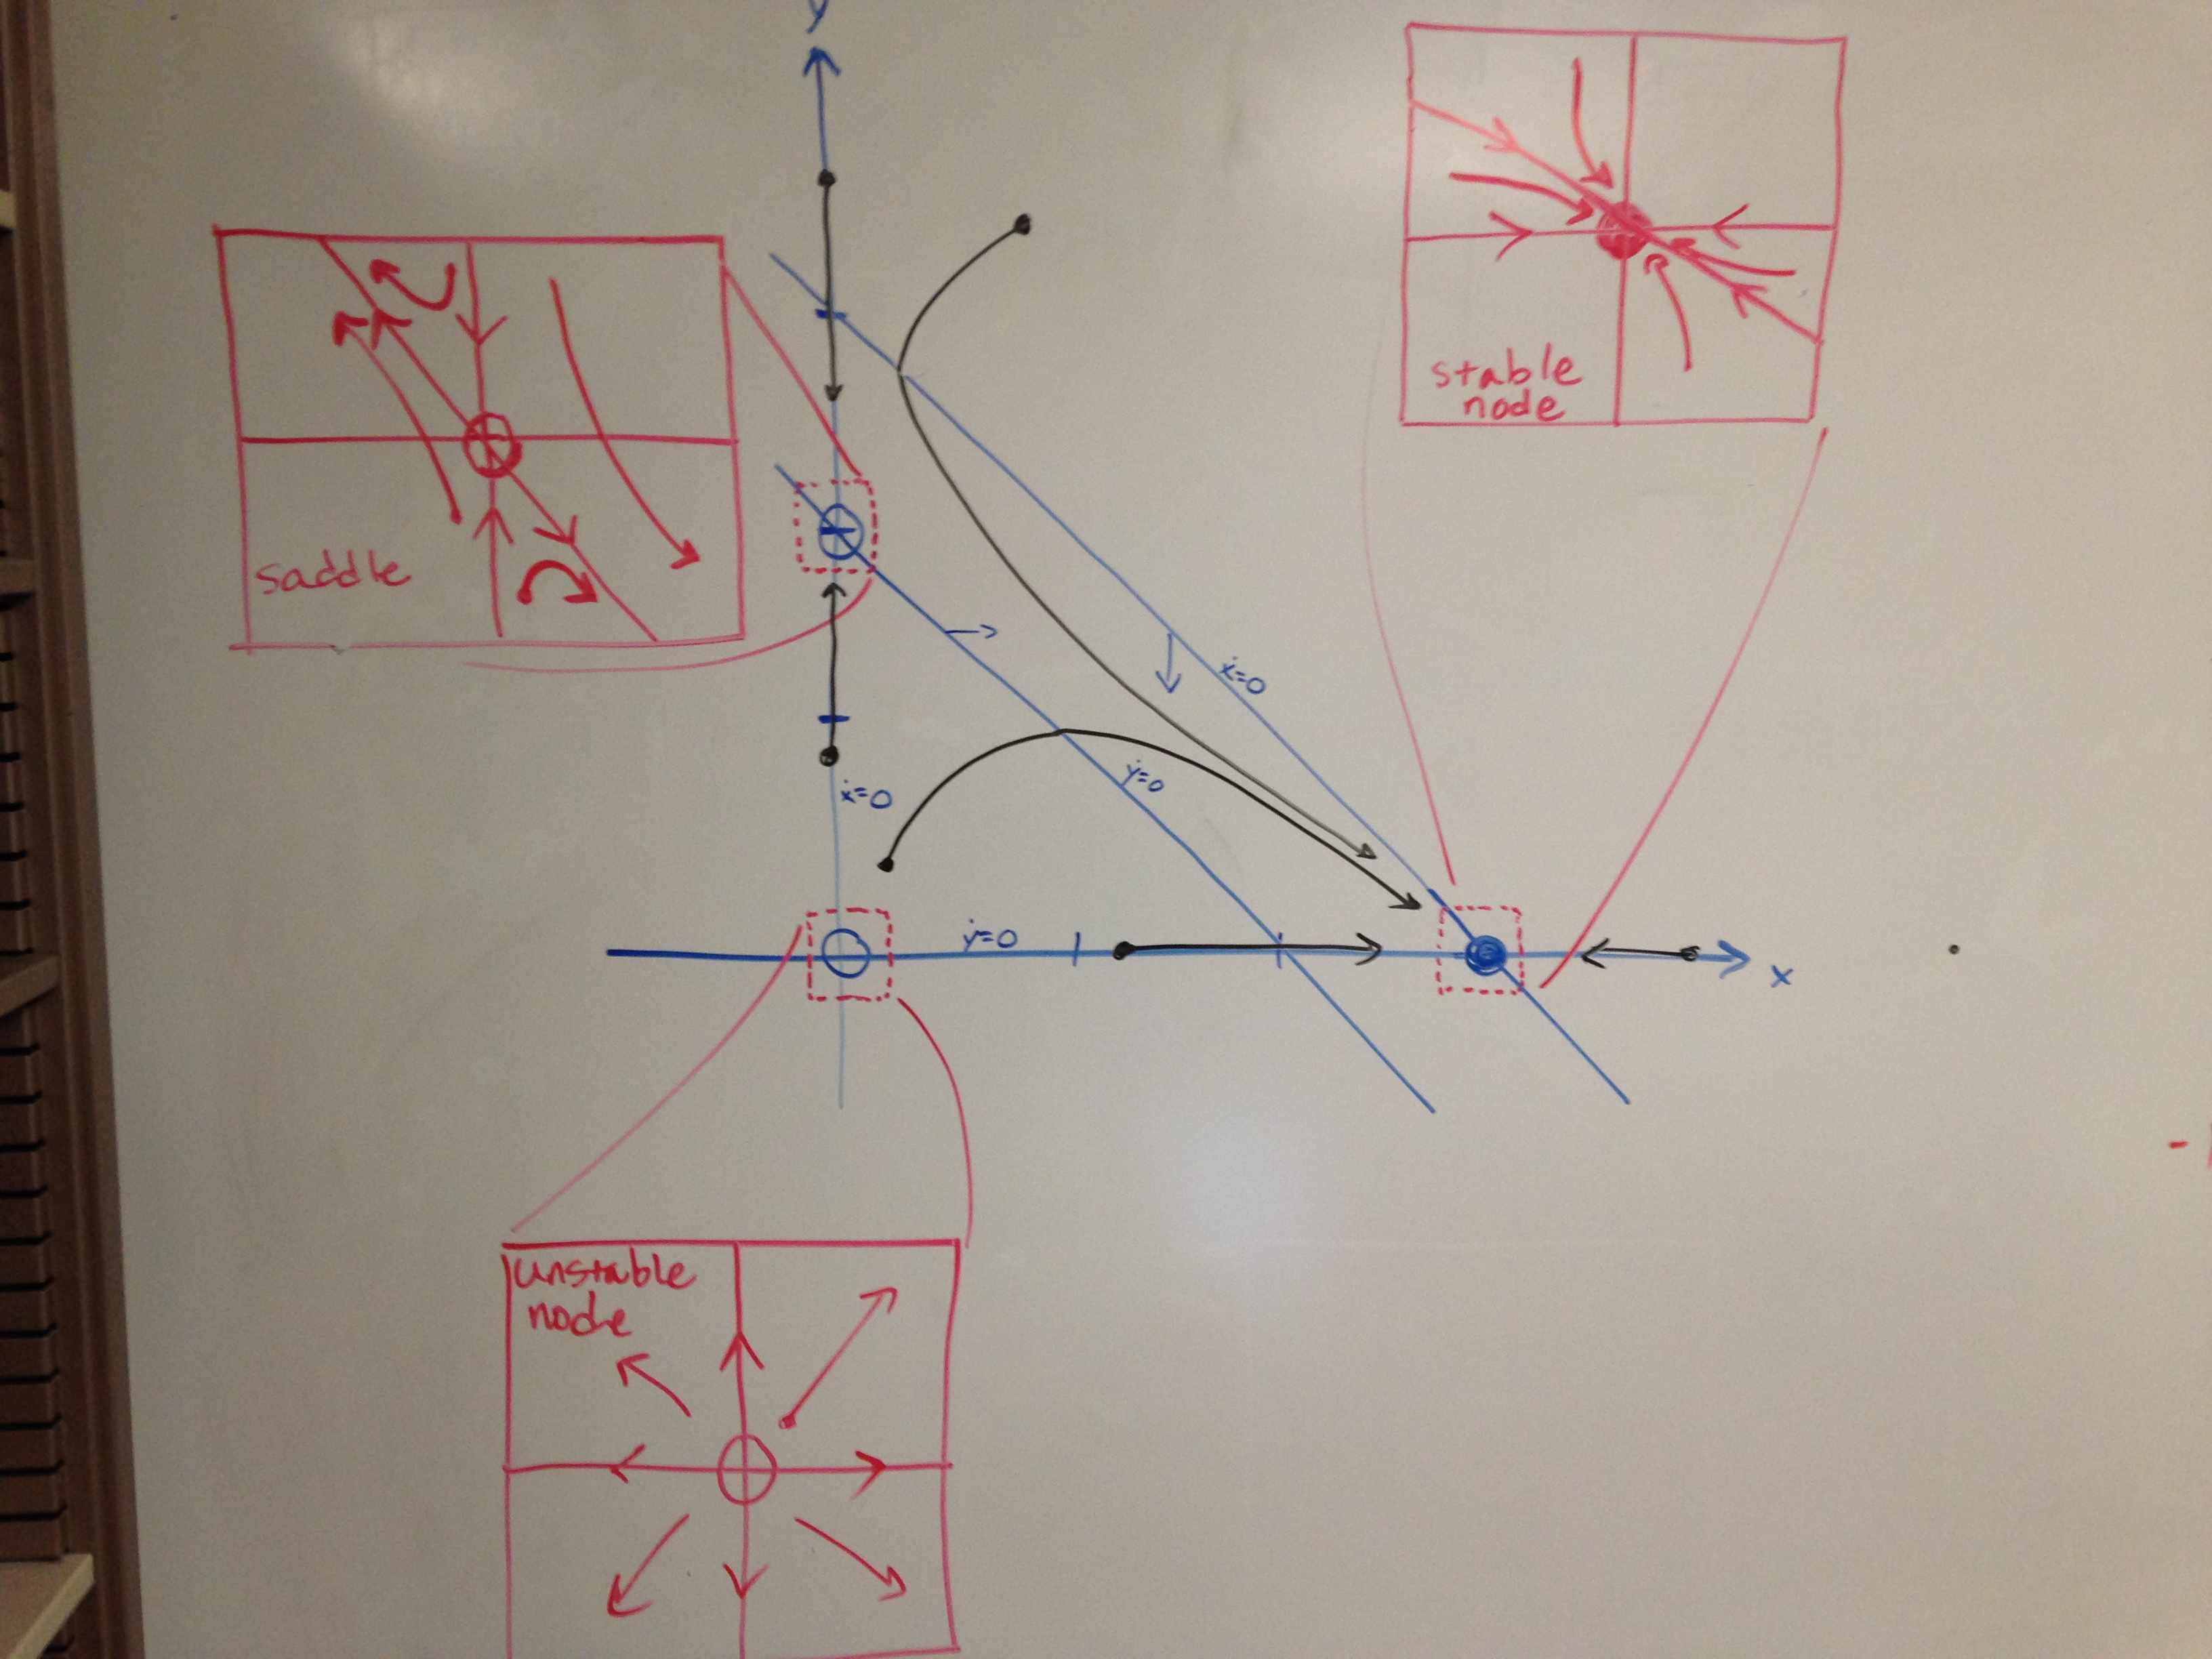 y
stable
node
saddle
ẋ=0
ẏ=0
ẋ=0
ẏ=0
x
unstable
node